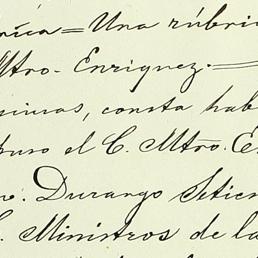 rica = Una rúbri
Mtro. Enriquez. =
simas, consta hab
puso el C. Mtro. E
o. Durango Setie
C. Ministros de la